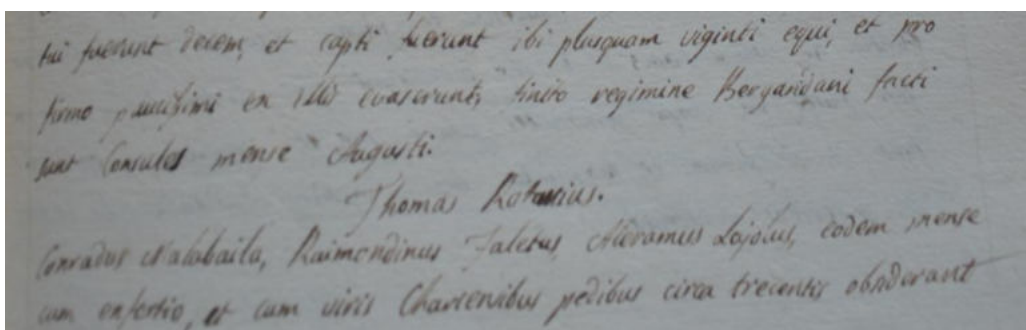 tui fuerunt decem, et capti fuerunt ibi plusquam viginti equi, et pro
firmo paucissimi ex illis evaserunt, finito regimine Bergandani facti
sunt Consules mense Augusti.
Thomas Rotarius.
Conradus Malabaila, Raimondinus Faletus, Aleramus Lajolus, eodem mense
cum enfortio, et cum viris pedibus circa trecentis obsiderant